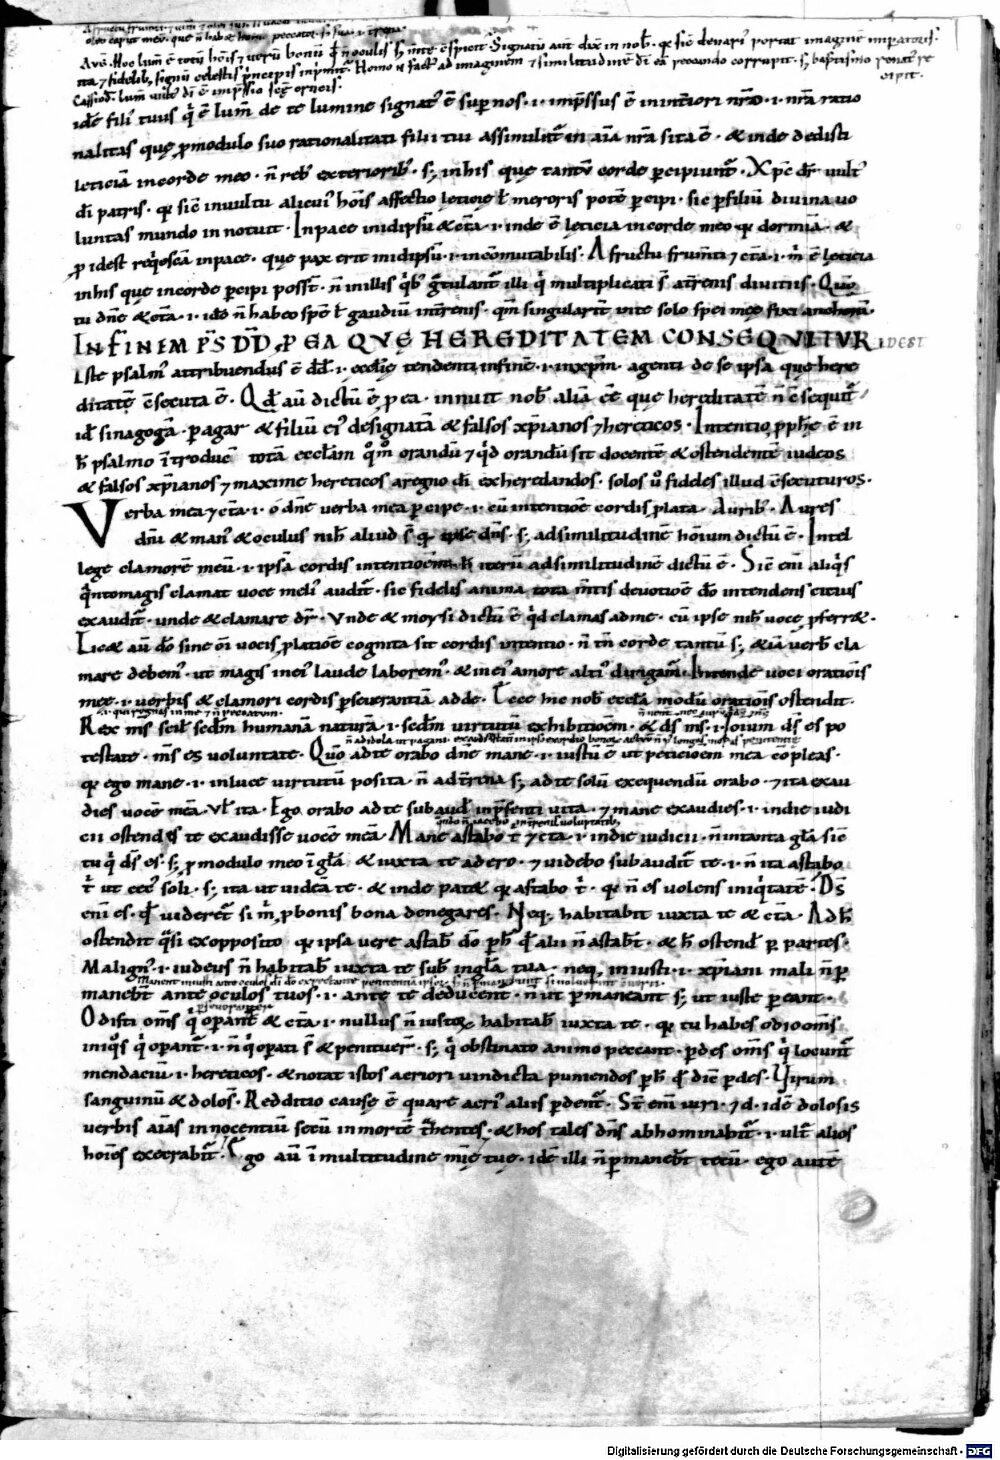 oleo caput meū. que ñ habet homo peccator. s; sua. i. terrena.
Aug. Hoc lum̄ ē totū hōis ⁊ uerū bonū q̄ ñ oculis s; mente cспicit. Signatū aut dix̄ in nob̄. q̄ sic̄ denari' portat imaginē imperatoris.
ita ⁊ fidelib; signū celestis p̄ncipis inp̄mit̄. Homo ē fact' ad imaginem ⁊ similitudinē dī eā peccando corrupit. s; baptismo renat' re
cipit.
Cassiod. lum̄ uult' dī ē imp̄ssio sc̄ę crucis.
idē fili' tuus q̄ ē lum̄ de te lumine signat' ē sup nos. i. imp̄ssus ē in int̄iori nr̄o. i. nr̄a ratio
nalitas quę ꝓmodulo suo rationalitati filii tui assimilat̄ in aīa nr̄a sita ē. & inde dedisti
leticiā in corde meo. ñ reb' exteriorib'. s; in his quę tantū corde ꝑcipiunt̄. Xp̄c dr̄ uult'
dī patris. q̄ sic̄ in uultu alicui' hōis affectio leticię ł meroris potē ꝑcipi. sic ꝑ filiū diuina uo
luntas mundo innotuit. In pace in idipsū & cēta. i. inde ē leticia in corde meo q̄ dormiā. &
ꝓ idest req̄escā in pace. quę pax erit in idipsū. i. incōmutabilis. A fructu frum̄ti ⁊ cēta. i. m̄ ē leticia
in his quę in corde ꝑcipi poss̄t. ñ in illis q̄b' ḡtulant̄ illi q̄ multiplicati s̄ at̄renis diuitiis. Qm̄
tu dn̄e & cēta. i. ideo ñ habeo spē ł gaudiū in t̄renis. qm̄ singularit̄ uite solo spei meę fixi anchorā.
IN FINEM PS̄ DD̄, P EA QVĘ HEREDITATEM CONSEQVITVR IDEST
Iste psalm' attribuendus ē dd̄. i. ecclie tendenti in finē. i. in xp̄m. agenti de se ipsa quę here
ditatē c̄secuta ē. Qd̄ aū dictū ē ꝓ ea. innuit nob̄ aliā ēē que hereditatē ñ c̄sequit̄
id̄ sinagogā. ꝑ agar & filiū ei' designatā & falsos xp̄ianos ⁊ hereticos. Intentio ꝓph̄e ē in
h̄ psalmo ītroducē totā eccl̄am q̄m̊ orandū ⁊ q̄d orandū sit docentē & ostendentē iudeos
& falsos xp̄ianos ⁊ maxime hereticos a regno dī exheredandos. solos ů fideles illud c̄secuturos.
Verba mea ⁊ cēta. i. o dn̄e uerba mea ꝑcipe. i. cū intentiōe cordis ꝓlata. Aurib'. Aures
dn̄i & man' & oculus nih̄ aliud s̄ q̄ ipse dn̄s. s; ad similitudinē hōium dictū ē. Intel
lege clamorē meū. i. ipsā cordis intentiōem h̄ iterū ad similitudinē dictū ē. Sic̄ eni aliq̄s
q̄nto magis clamat uoce meli' audit̄. sic fidelis anima tota m̄tis deuotiōe dō intendens citius
exaudit̄. unde & clamare dr̄. Vnde & moysi dictū ē q̄d clamas ad me. cū ipse nih̄ uoce ꝓferret.
Licet aū dō sine orī uocis ꝓlatiōe cognita sit cordis intentio. ñ tn̄ corde tantū s; &iā uerb' cla
mare debem'. ut magis in ei' laude laborem'. & in ei' amore alti' dirigam̄. Intende uoci orationis
meę. i. uerbis & clamori cordis ꝑseuerantiā adde. Ecce hic nob̄ eccl̄a modū orationis ostendit.
i. qui regnas in me ⁊ ñ peccatum.
Rex m̄s scil' sedm̄ humanā naturā. i. sedm̄ uirtutū exhibitioem. & ds̄ m̄s. i. oīum ds̄ es po
testate. m̄s es uoluntate. Qm̄ ad te orabo dn̄e mane. i. iustū ē ut peticioēm mea cōpleas.
q̄ ego mane. i. in luce uirtutū posita. ñ ad t̄rena s; ad te solū exequendū orabo. ⁊ ita exau
dies uocē meā. Vł ita. Ego orabo ad te subaud' in p̄senti uita. ⁊ mane exaudies. i. in die iudi
cii ostendes te exaudisse uocē meā. Mane astabo t̄ ⁊ cēta. i. in die iudicii. ñ in tanta gl̄a sic̄
tu q̄ ds̄ es. s; ꝓ modulo meo ī gl̄a & iuxta te adero. ⁊ uidebo subaudit̄ te. i. ñ ita astabo
t̄ ut cec' soli. s; ita ut uideā te. & inde patet q̄ astabo t̄. q̄ ñ es uolens iniq̄tatē. Ds̄
eni es. q̄ uideret̄ si m̄ ꝓ bonis bona denegares. Neq, habitabit iuxta te & cēta. Ad h̄
ostendit q̄si ex opposito q̄ ipsa uere astab̄ dō ꝑ h̄ q̄ alii ñ astab̄t. & h̄ ostend̄ ꝑ partes.
Malign'. i. iudeus ñ habitab̄ iuxta te sub' in gl̄a tua. neq, iniusti. i. xp̄iani mali ñ ꝑ
maneb̄t ante oculos tuos. i. ante te deducent. ñ ut ꝑmaneant s; ut iuste ꝑeant.
i. ꝑseuerant̄
Odisti om̄s q̄ oꝑant̄ & cēta. i. nullus ñ iustoȝ habitab̄ iuxta te. q̄ tu habes odio om̄s
iniq̄os q̄ oꝑant̄. i. ñ q̄ oꝑati s̄ & penituer̄. s; q̄ obstinato animo peccant. ꝑdes om̄s q̄ locunt̄
mendaciū. i. hereticos. & notat istos acriori uindicta puniendos ꝑ h̄ q̄ dic̄ ꝑdes. Virum
sanguinū & dolos'. Redditio cause ē quare acri' aliis ꝑdent̄. St̄ eni uiri. ⁊ d. idē dolosis
uerbis aīas innocentiū secū in mortē t̄hentes. & hos tales dn̄s abhominabit̄. i. ult̄ alios
hoīes execrabit̄. Ego aū ī multitudine mīę tuę. idē illi ñ ꝑmaneb̄t tecū. ego autē
Digitalisierung gefördert durch die Deutsche Forschungsgemeinschaft - DFG